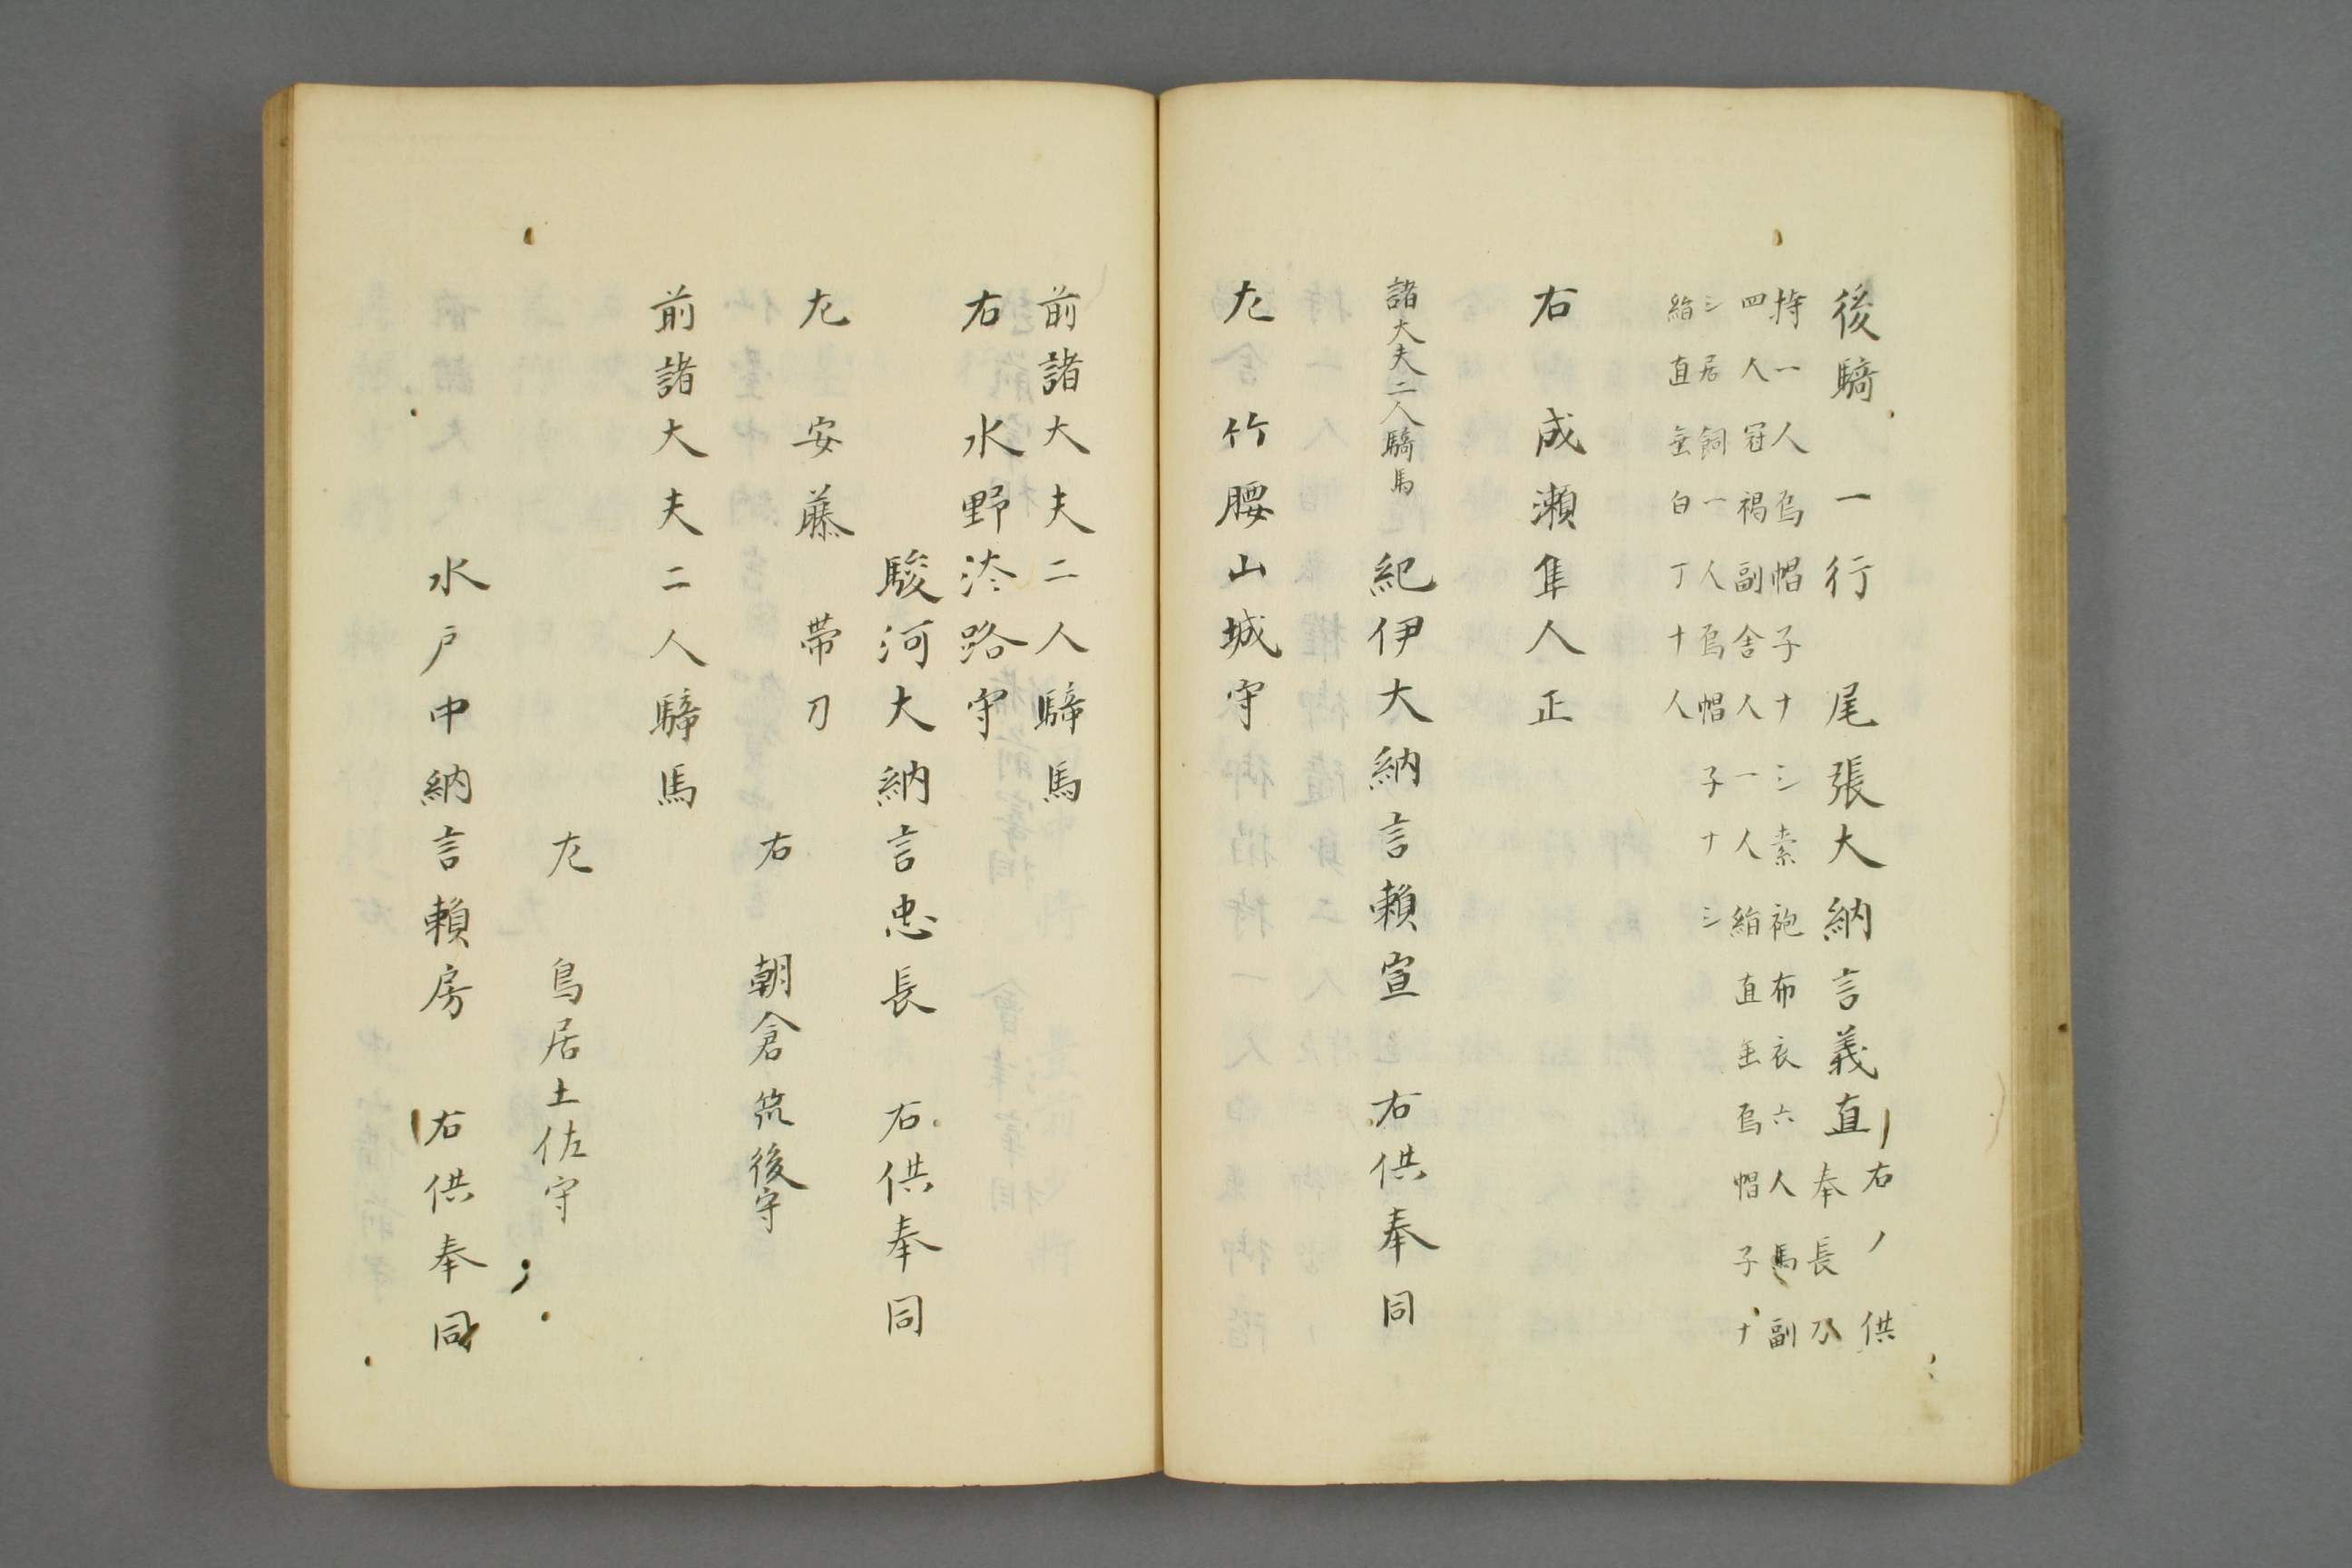 後騎　一行　尾張大納言義直 右ノ供
奉長刀
持一人烏帽子十三素袍布衣六人馬副
四人冠褐副舎人一人絹直垂烏帽子十
三居飼一人烏帽子十三
絹直垂白丁十人
右　成瀬隼人正
諸大夫二人騎馬　紀伊大納言頼宣　右供奉同
左　竹腰山城守
前諸大夫二人騎馬
右　水野淡路守
駿河大納言忠長　右供奉同
左　安藤　帯刀
右　朝倉筑後守
前諸大夫二人騎馬
左　鳥居土佐守
水戸中納言頼房　右供奉同